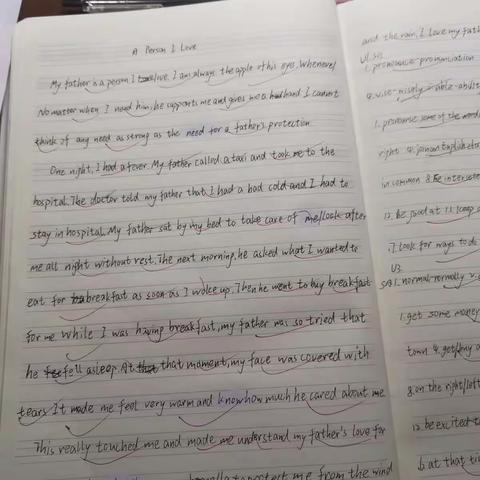 A Person I Love
My father is a person I love. I am always the apple of his eyes. Whenever/
No matter when I need him, he supports me and gives me a hand I cannot
think of any need as strong as the need for a father's protection
One night, I had a fever. My father called a taxi and took me to the
hospital. The doctor told my father that I had a bad cold and I had to
stay in hospital. My father sat by my bed to take care of me/look after
me all night without rest. The next morning, he asked what I wanted to
eat for breakfast as soon as I woke up. Then he went to buy breakfast
for me. While I was having breakfast, my father was so tried that
he fell asleep. At that moment, my face was covered with
tears. It made me feel very warm and know how much he cared about me
This really touched me and made me understand my father's love for
to protect me from the wind
and the rain. I love my fath
1. pronounce - pronunciation
1. pronounce some of the word
right
in common
12. be good at
17. look for ways to do
U3
1. normal - normally
1. get some money
town
8. on the right/left
12. be excited t
6. at that ti